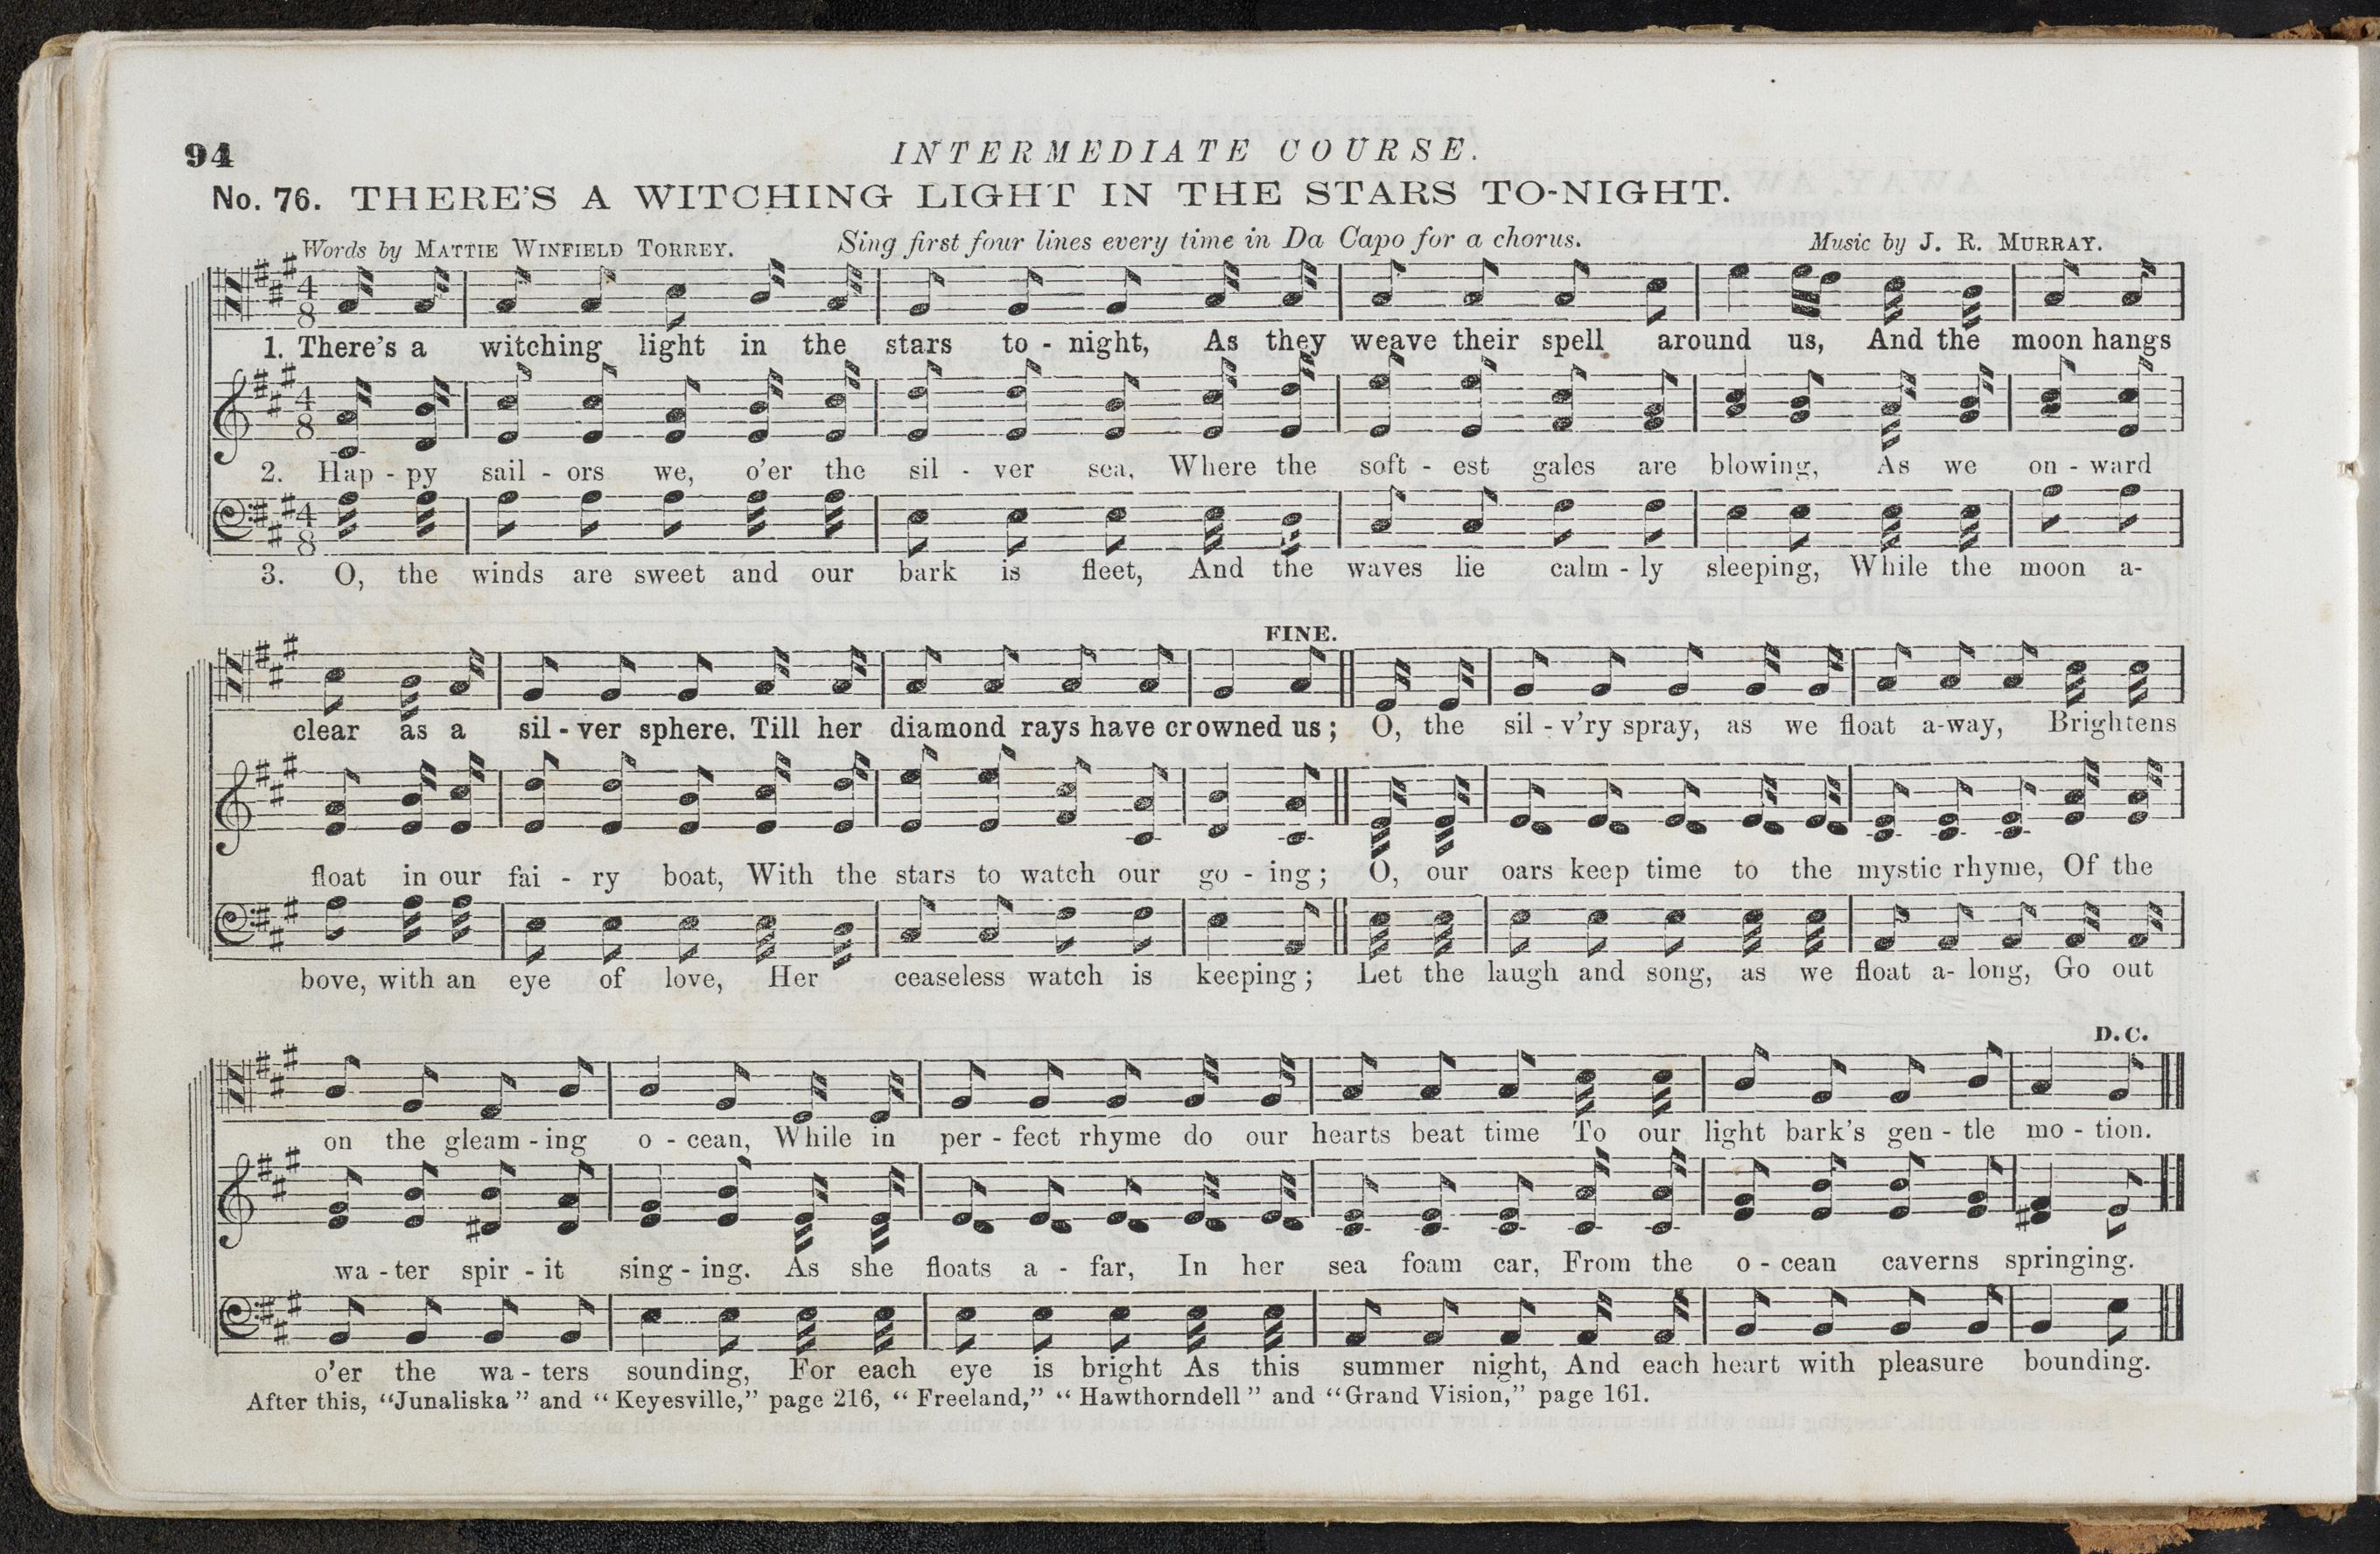 94
INTERMEDIATE COURSE.
No. 76. THERE'S A WITCHING LIGHT IN THE STARS TO-NIGHT.
Words by MATTIE WINFIELD TORREY. Sing first four lines every time in Da Capo for a chorus. Music by J. R. MURRAY.
1. There's a witching light in the stars to - night, As they weave their spell around us, And the moon hangs
2. Hap - py sail - ors we, o'er the sil - ver sea, Where the soft - est gales are blowing, As we on - ward
3. O, the winds are sweet and our bark is fleet, And the waves lie calm - ly sleeping, While the moon a-
FINE.
clear as a sil - ver sphere. Till her diamond rays have crowned us; O, the sil - v'ry spray, as we float a-way, Brightens
float in our fai - ry boat, With the stars to watch our go - ing; O, our oars keep time to the mystic rhyme, Of the
bove, with an eye of love, Her ceaseless watch is keeping; Let the laugh and song, as we float a- long, Go out
D.C.
on the gleam - ing o - cean, While in per - fect rhyme do our hearts beat time To our light bark's gen - tle mo - tion.
wa - ter spir - it sing - ing. As she floats a - far, In her sea foam car, From the o - cean caverns springing.
o'er the wa - ters sounding, For each eye is bright As this summer night, And each heart with pleasure bounding.
After this, "Junaliska" and "Keyesville," page 216, "Freeland," "Hawthorndell" and "Grand Vision," page 161.